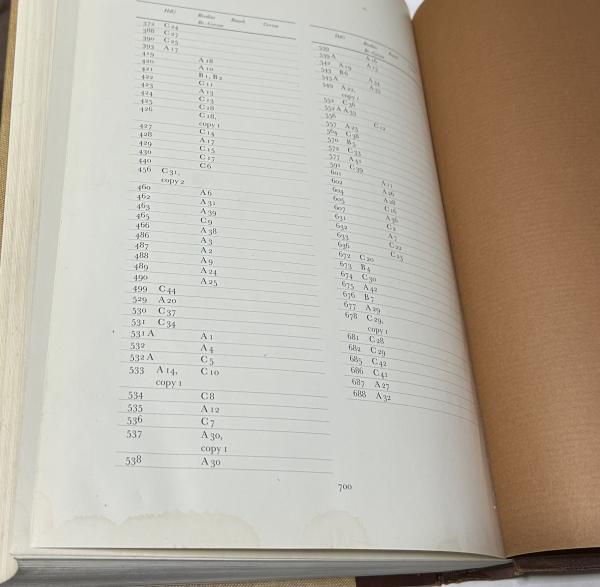 HdG Bredius Bauch Gerson
Br.-Gerson
372 C 24
388 C 27
390 C 25
393 A 17
419 A 18
420 A 10
421 B 1, B 2
422 C 11
423 A 13
424 C 13
425 C 28
426 C 28,
copy 1
427 C 14
428 A 17
429 C 15
430 C 27
440 C 6
456 C 31,
copy 2
460 A 6
462 A 31
463 A 39
465 C 9
466 A 38
486 A 3
487 A 2
488 A 9
489 A 24
490 A 25
499 C 44
529 A 20
530 C 37
531 C 34
531 A A 1
532 A 4
532 A C 5
533 A 14, C 10
copy 1
534 C 8
535 A 12
536 C 7
537 A 30,
copy 1
538 A 30
HdG Bredius Bauch
Br.-Gerson
539 A 16
539 A A 15
542 A 19
543 B 6
543 A A 34
549 A 22, A 33
copy 1
552 C 36
552 A A 33
556 C 12
557 A 25
564 C 38
570 B 5
572 C 33
577 A 42
591 C 39
601 A 11
602 A 26
604 A 28
605 C 16
607 A 36
631 C 2
632 A 7
633 C 22
636 C 23
672 C 20
673 B 4
674 C 30
675 A 42
676 B 7
677 A 29
678 C 29,
copy 1
681 C 28
682 C 29
685 C 42
686 C 41
687 A 27
688 A 32
700